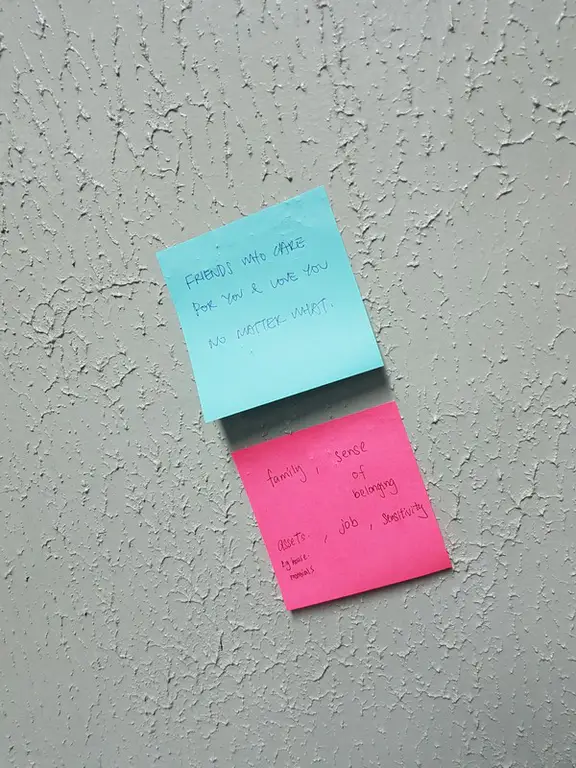 FRIENDS WHO CARE
FOR YOU & LOVE YOU
NO MATTER WHAT.
family, sense
of
belonging
assets, job, sensitivity
eg house